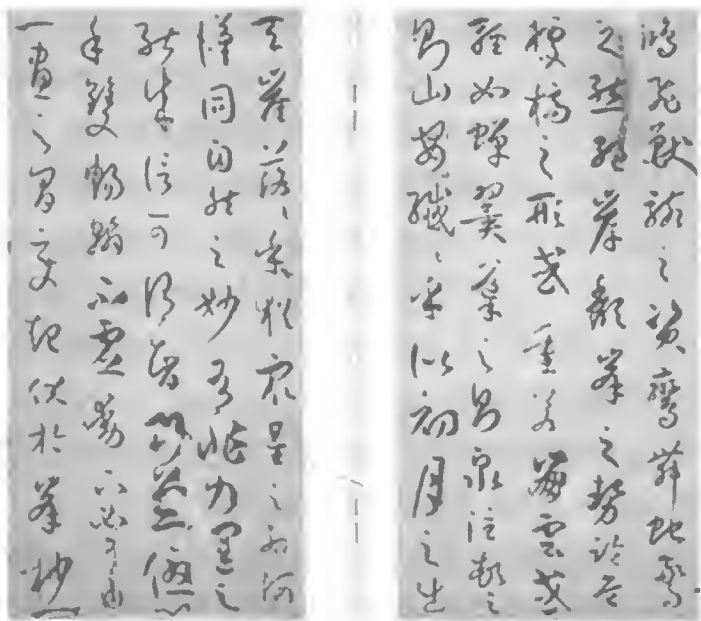 鴻飛獸駭之資鸞舞蛇驚
之態絕岸頹峯之勢臨危
據槁之形或重若崩雲或
輕如蟬翼導之則泉注頓之
則山安纖〻乎似初月之出
天崖落〻乎猶衆星之列河
漢同自然之妙有非力運之
能成信可謂智巧兼優心
手雙暢翰不虛動下必有由
一畫之間變起伏於峯杪一